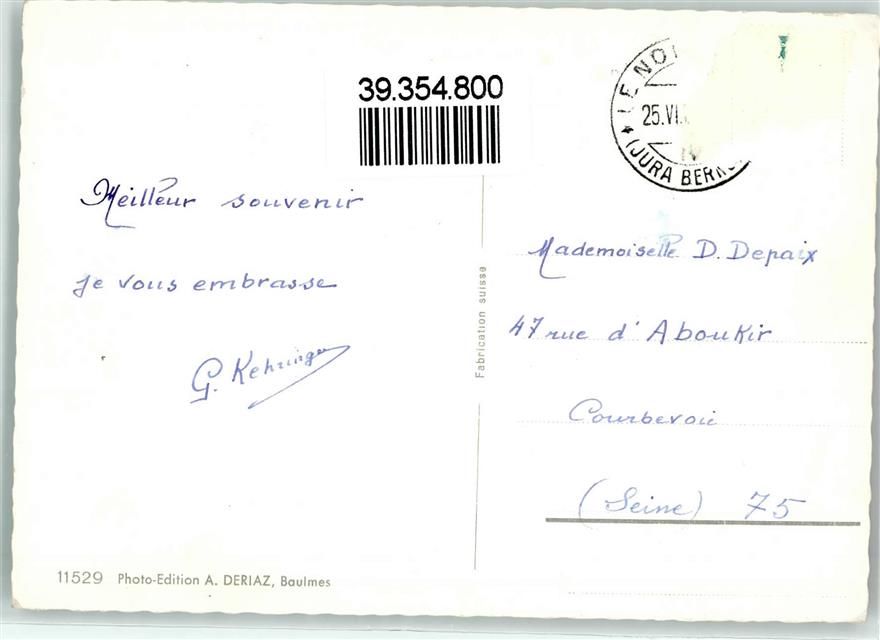 39.354.800
25.VI.
(JURA BERN
Meilleur souvenir
je vous embrasse
G. Kehringer
Fabrication suisse
Mademoiselle D. Depaix
47 rue d'Aboukir
Courbevoie
(Seine) 75
11529 Photo-Edition A. DERIAZ, Baulmes